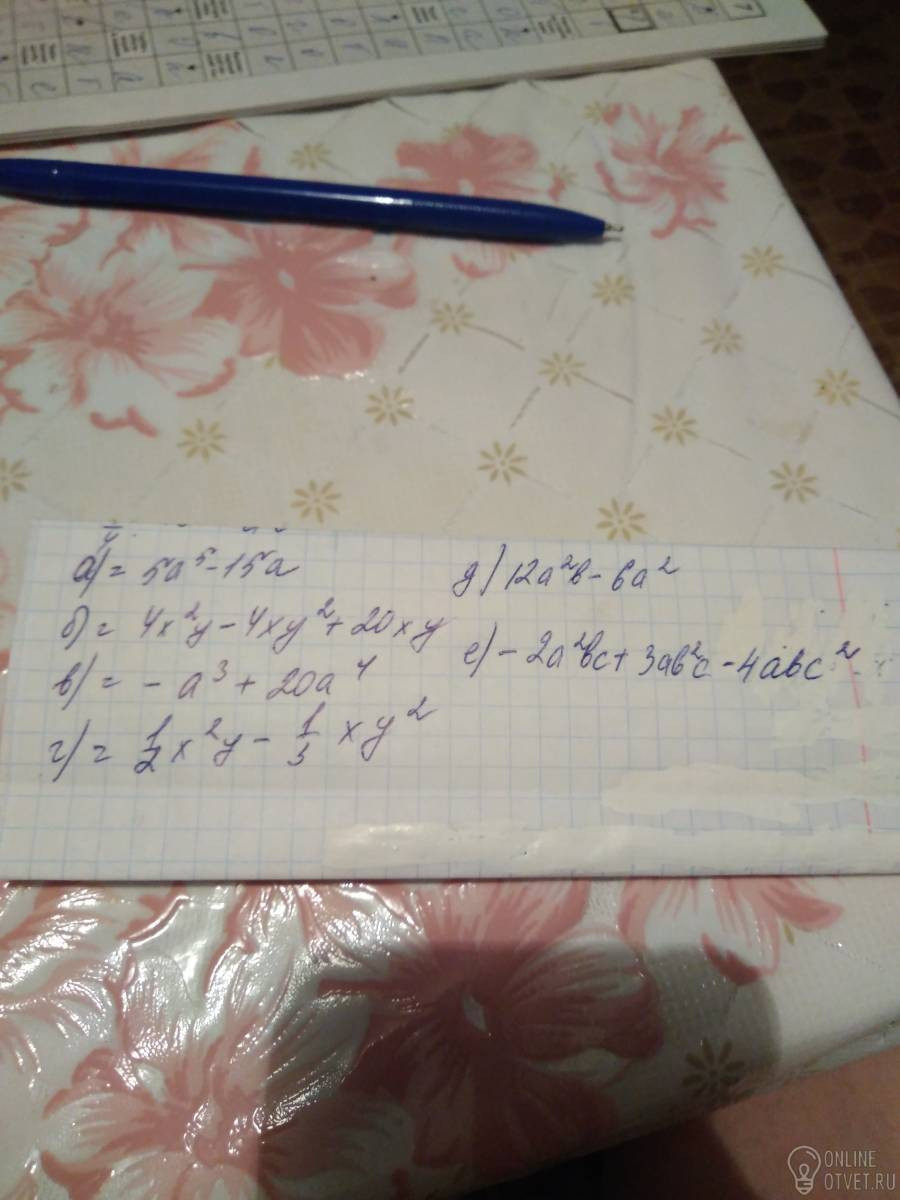 а) = 5a⁵ - 15a
б) = 4x²y - 4xy² + 20xy
в) = - a³ + 20a⁴
г) = 1/2 x²y - 1/3 xy²
д) 12a²b - 6a²
е) - 2a²bc + 3ab²c - 4abc²
ONLINE
OTVET.RU